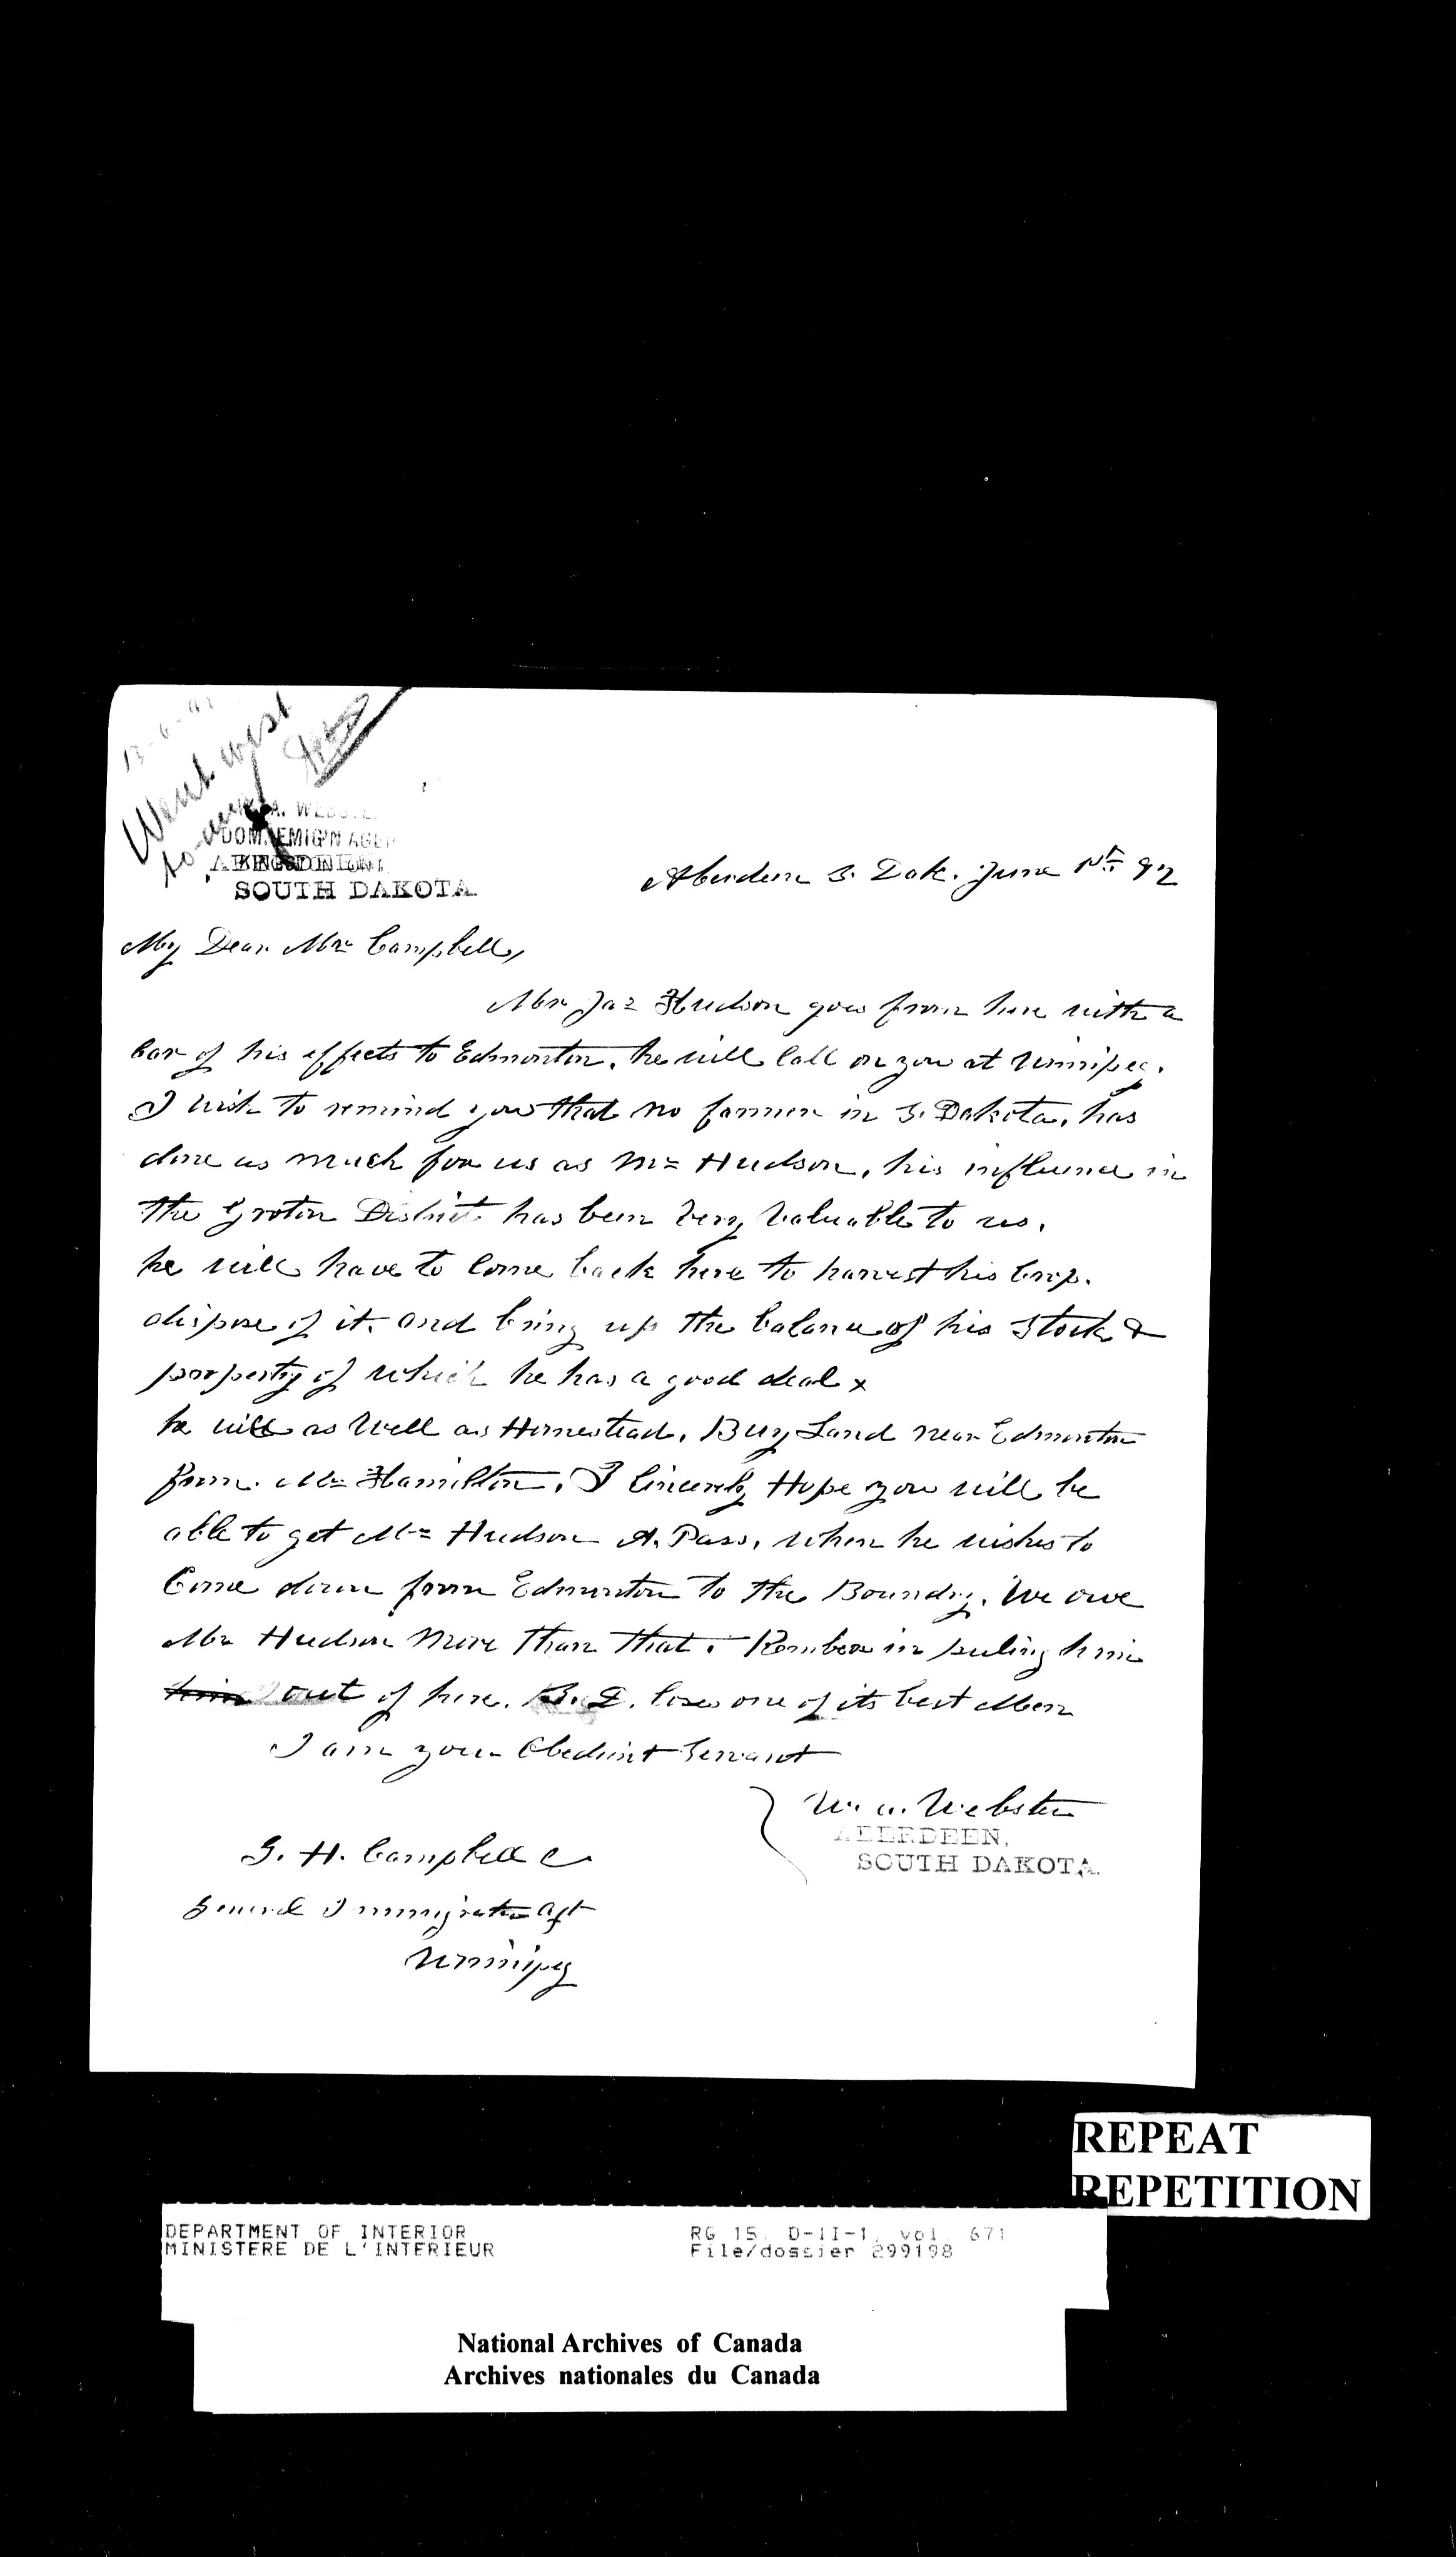 13-6-92
Went west
to-day
W. A. WEBSTE
DOM. EMIG'N AGE
SOUTH DAKOTA.
Aberdeen S. Dak. June 1st 92
My Dear Mr Campbell,
Mr Jas Hudson goes from here with a
Car of his effects to Edmonton, he will Call on you at Winnipeg.
I wish to remind you that no farmer in S. Dakota, has
done as much for us as Mr Hudson, his influence in
the Groton District has been Very Valuable to us.
he will have to Come back here to harvest his Crop.
dispose of it. and bring up the balance of his Stock &
porperty of which he has a good deal x
he will as Well as Homestead, Buy Land near Edmonton
from Mr Hamilton, I Sincerely Hope you will be
able to get Mr Hudson A. Pass, when he wishes to
Come down from Edmonton to the Boundry. We owe
Mr Hudson More Than that. Rember in puling him
him out of here. S. D. loses one of its best Men
I am your Obedient Servant
W. A. Webster
ABERDEEN,
SOUTH DAKOTA.
G. H. Campbell
General Immigration Agt
Winnipeg
REPEAT
REPETITION
DEPARTMENT OF INTERIOR RG 15, D-II-1, vol. 671
MINISTERE DE L'INTERIEUR File/dossier 299198
National Archives of Canada
Archives nationales du Canada